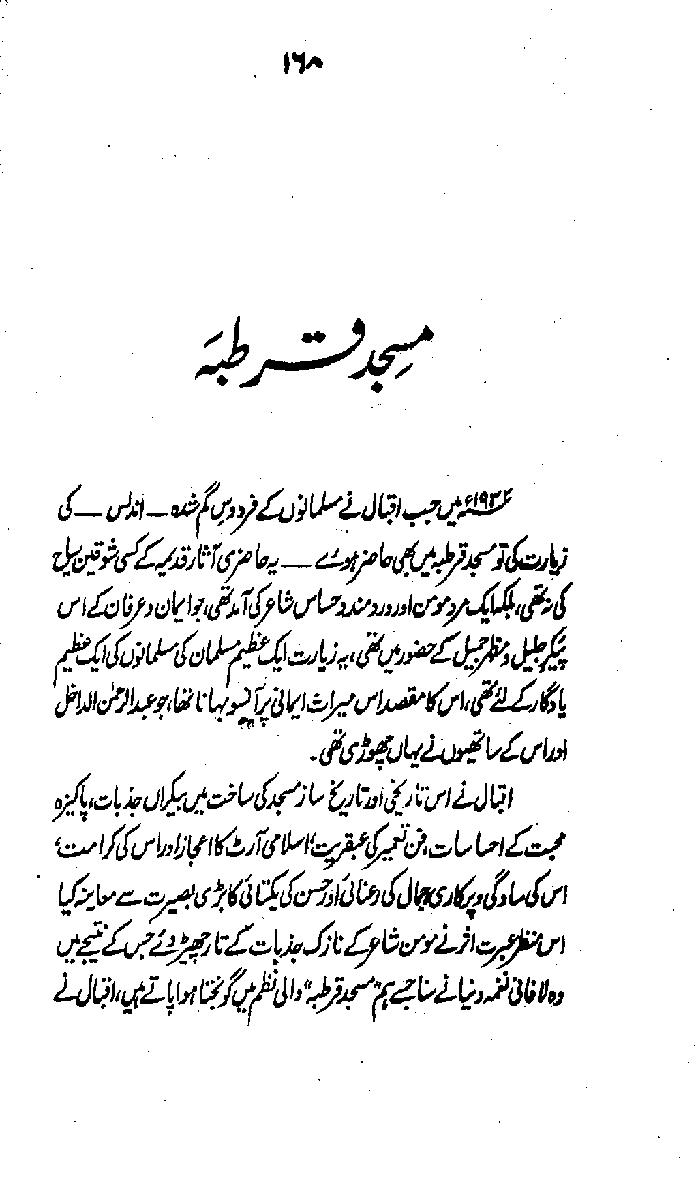 ۱۶۸
مسجد قرطبہ
۱۹۳۲ء میں جب اقبال نے مسلمانوں کے فردوسِ گم شدہ — اندلس — کی
زیارت کی تو مسجد قرطبہ میں بھی حاضر ہوئے — یہ حاضری آثار قدیمہ کے کسی شوقین سیاح
کی نہ تھی، بلکہ ایک مرد مومن اور دردمند و حساس شاعر کی آمد تھی، جو ایمان و عرفان کے اس
پیکر جلیل و مظہر جمیل کے حضور میں تھی، یہ زیارت ایک عظیم مسلمان کی مسلمانوں کی ایک عظیم
یادگار کے لئے تھی، اس کا مقصد اس میراث ایمانی پر آنسو بہانا تھا، جو عبدالرحمٰن الداخل
اور اس کے ساتھیوں نے یہاں چھوڑی تھی۔
اقبال نے اس تاریخی اور تاریخ ساز مسجد کی ساخت میں بیکراں جذبات، پاکیزہ
محبت کے احساسات، فن تعمیر کی عبقریت، اسلامی آرٹ کا اعجاز اور اس کی کرامت،
اس کی سادگی و پرکاری، جمال کی رعنائی اور حسن کی یکتائی کا بڑی بصیرت سے معاینہ کیا
اس منظر عبرت اثر نے مومن شاعر کے نازک جذبات کے تار چھیڑ دئے جس کے نتیجے میں
وہ لافانی نغمہ دنیا نے سنا جسے ہم "مسجد قرطبہ" والی نظم میں گونجتا ہوا پاتے ہیں، اقبال نے